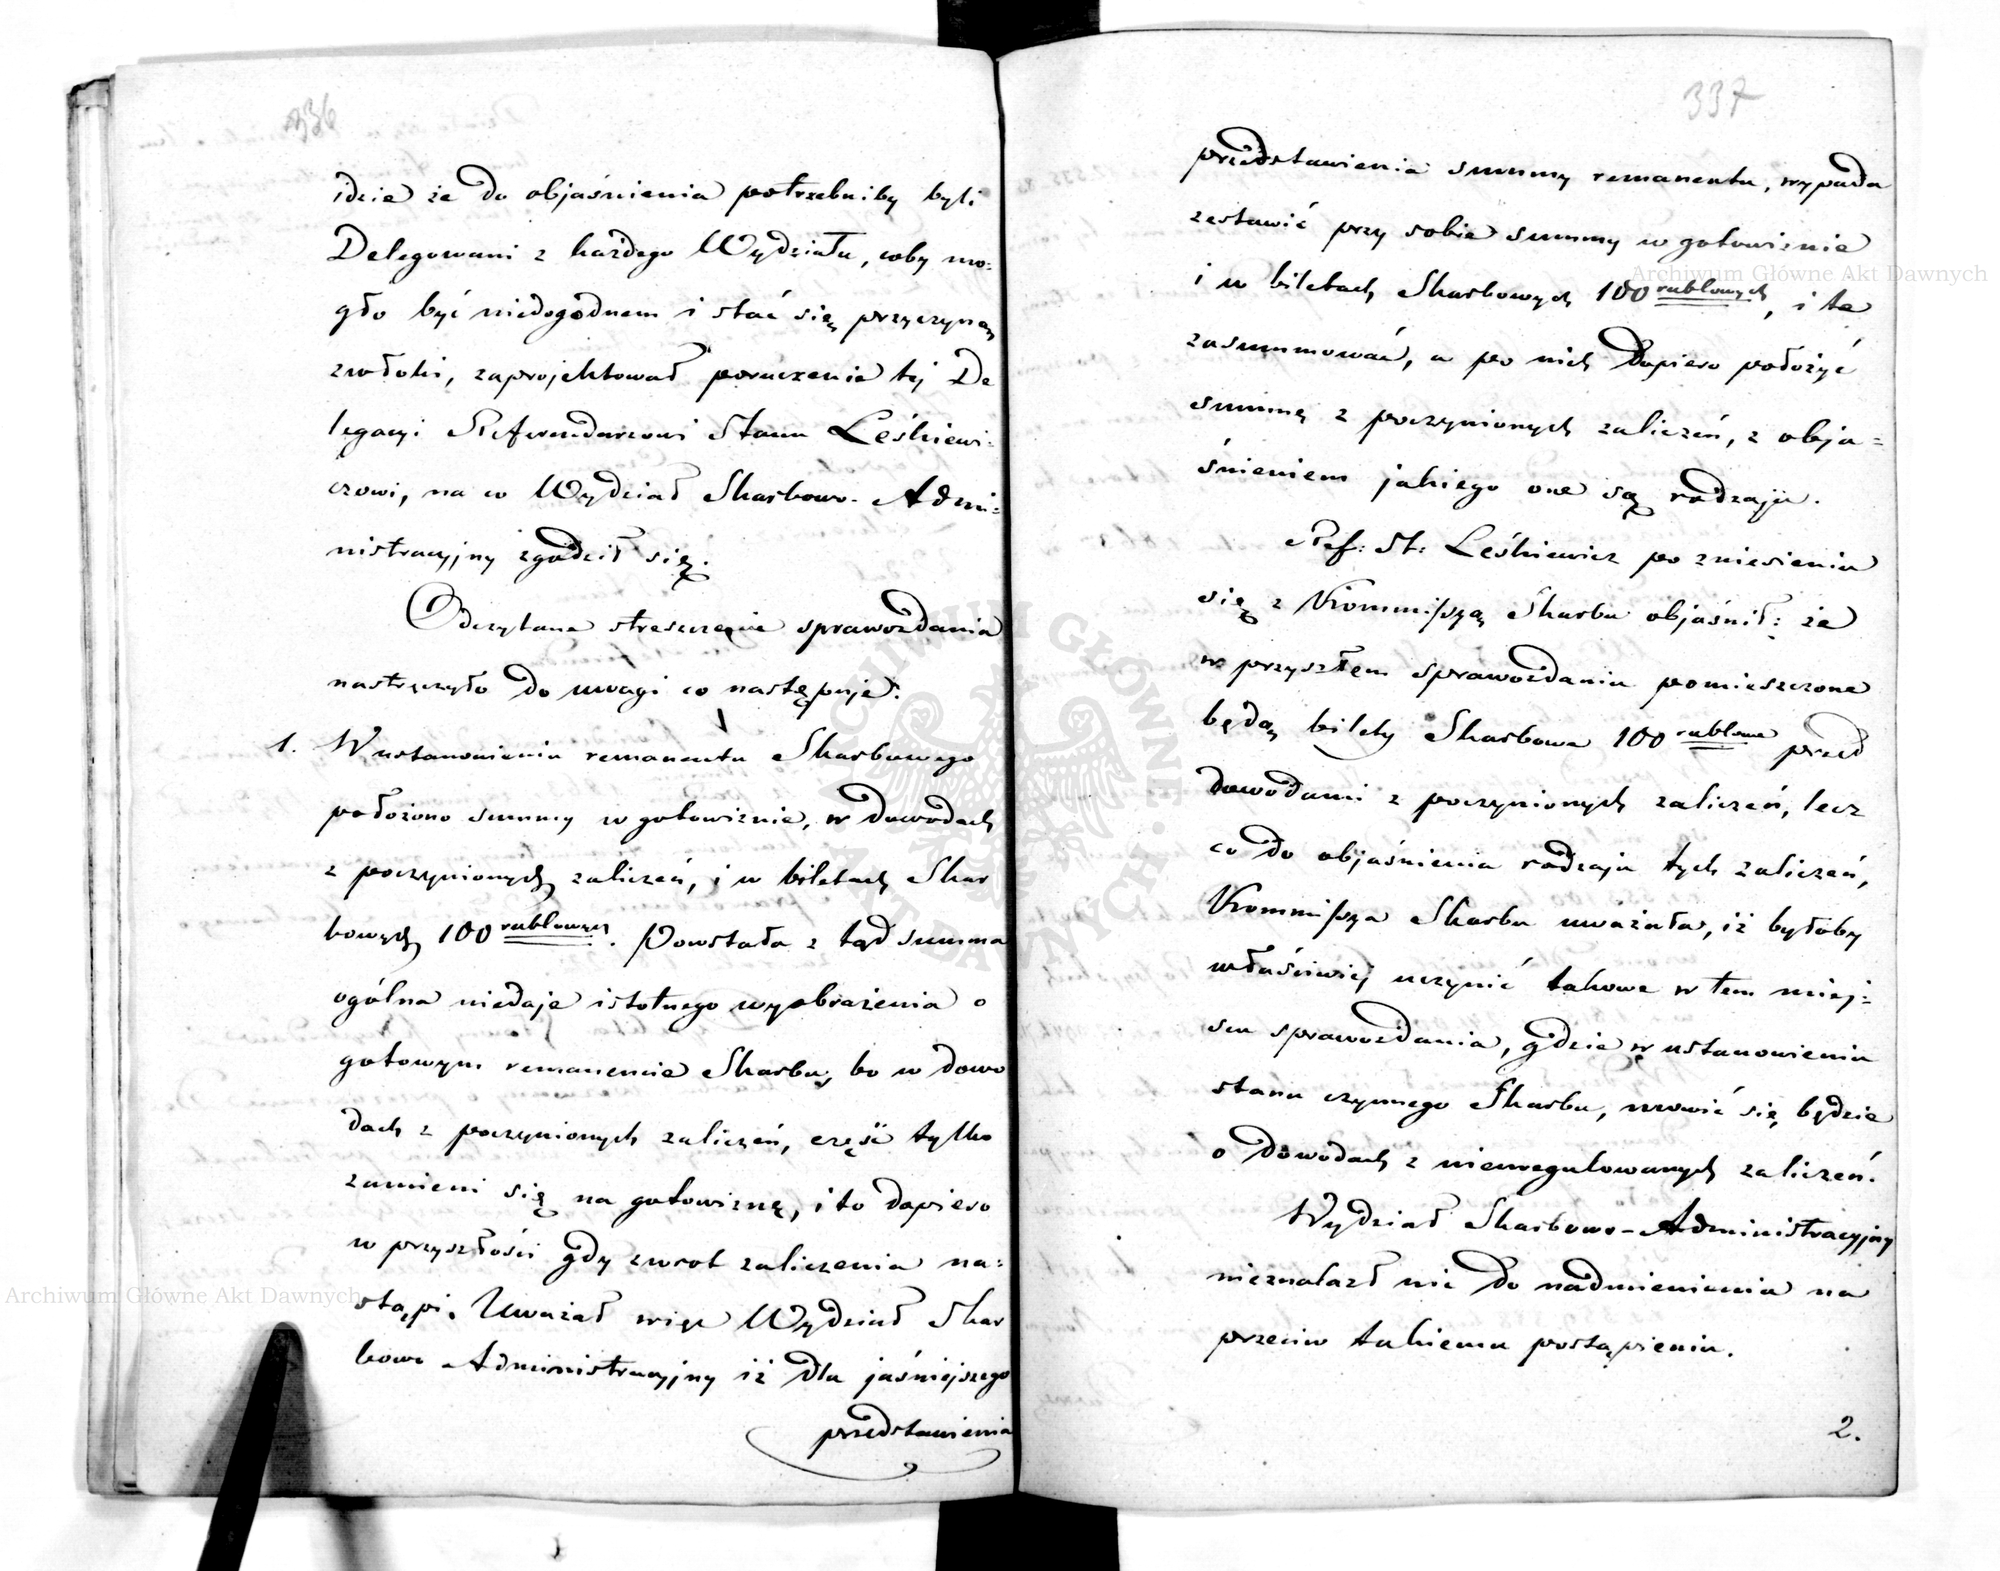 336
idzie że do objaśnienia potrzebniby byli
Delegowani z każdego Wydziału, coby mo:
gło być niedogodnem i stać się przyczyną
zwłoki, zaprojektował poruczenie tej De
legacyi Referendarzowi Stanu Leśkiewi:
czowi, na co Wydział Skarbowo-Admi:
nistracyjny zgodził się.
Odczytane streszczenie sprawozdania
nastręczyło do uwagi co następuje:
1. W ustanowieniu remanentu Skarbowego
położono summy w gotowiznie, w dowodach
z poczynionych zaliczeń, i w biletach Skar
bowych 100 rublowych. Powstała z tąd summa
ogólna niedaje istotnego wyobrażenia o
gotowym remanencie Skarbu, bo w dowo
dach z poczynionych zaliczeń, część tylko
zamieni się na gotowiznę, i to dopiero
w przyszłości gdy zwrot zaliczenia na:
stąpi. Uważał więc Wydział Skar
bowo Administracyjny iż dla jaśniejszego
przedstawienia
337
przedstawienia summy remanentu, wypada
zestawić przy sobie summy w gotowiznie
i w biletach Skarbowych 100 rublowych, i te
zasummować, a po nich dopiero położyć
summę z poczynionych zaliczeń, z obja=
śnieniem jakiego one są rodzaju.
Ref: St: Leśkiewicz po zniesieniu
się z Kommissyą Skarbu objaśnił: że
w przyszłem sprawozdaniu pomieszczone
będą bilety Skarbowe 100 rublowe przed
dowodami z poczynionych zaliczeń, lecz
co do objaśnienia rodzaju tych zaliczeń,
Kommissya Skarbu uważała, iż byłoby
właściwiej uczynić takowe w tem miej:
scu sprawozdania, gdzie w ustanowieniu
stanu czynnego Skarbu, mowić się będzie
o dowodach z nieuregulowanych zaliczeń.
Wydział Skarbowo-Administracyjny
nieznalazł nic do nadmienienia na
przeciw takiemu postąpieniu.
2.
Archiwum Główne Akt Dawnych
Archiwum Główne Akt Dawnych
ARCHIWUM GŁÓWNE AKT DAWNYCH